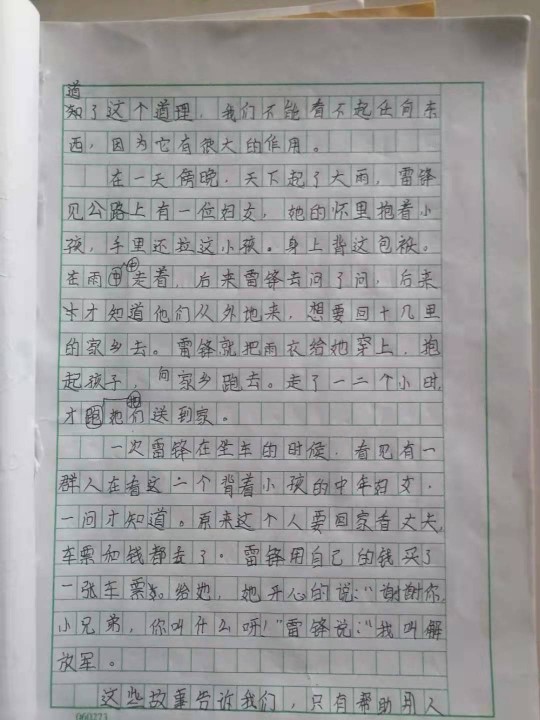 道
知了这个道理，我们不能看不起任何东
西，因为它有很大的作用。
在一天傍晚，天下起了大雨，雷锋
见公路上有一位妇女，她的怀里抱着小
孩，手里还拉这小孩。身上背这包被。
在雨中走着，后来雷锋去问了问，后来
才知道他们从外地来，想要回十几里
的家乡去。雷锋就把雨衣给她穿上，抱
起孩子，向家乡跑去。走了一二个小时，
才把她们送到家。
一次雷锋在坐车的时候，看见有一
群人在看这一个背着小孩的中年妇女，
一问才知道。原来这个人要回家看丈夫，
车票和钱都丢了。雷锋用自己的钱买了
一张车票给她，她开心的说：“谢谢你，
小兄弟，你叫什么呀！”雷锋说：“我叫解
放军。
这些故事告诉我们，只有帮助别人
060273